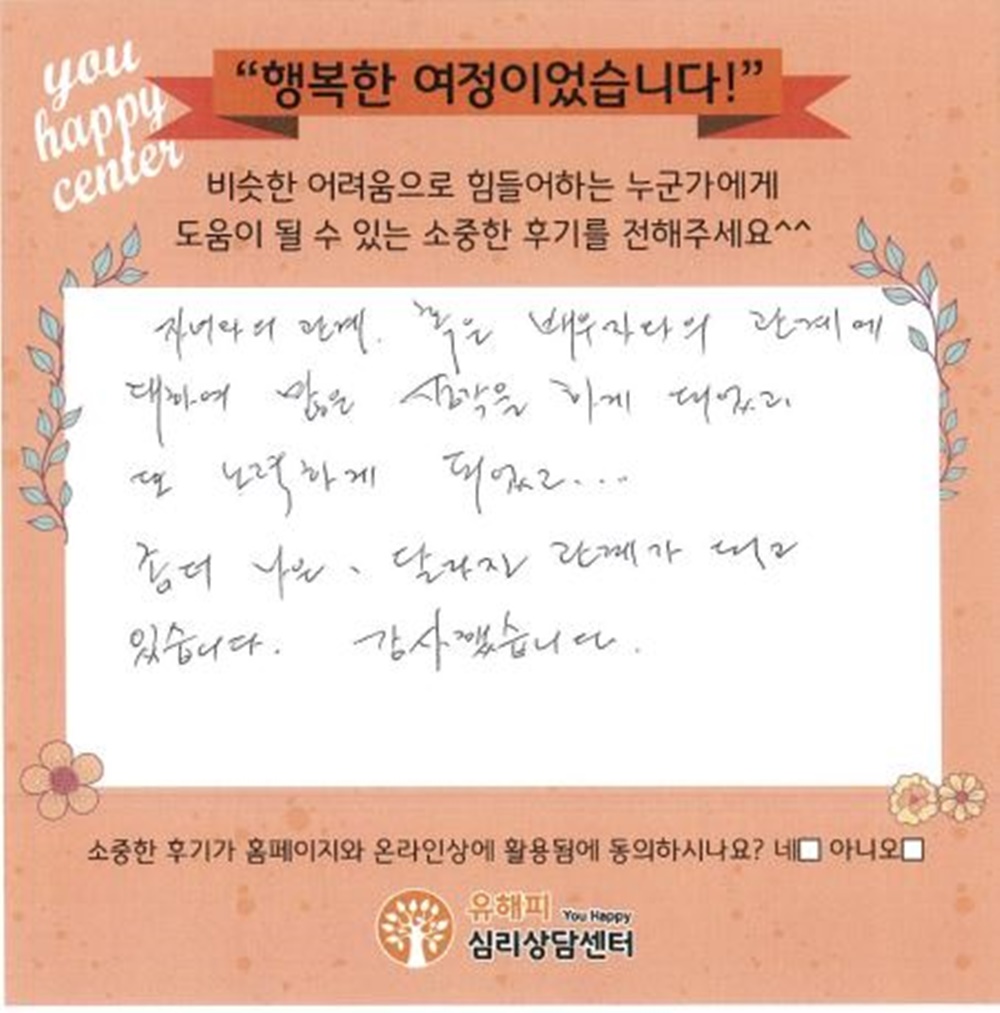 you
happy
center
“행복한 여정이었습니다!”
비슷한 어려움으로 힘들어하는 누군가에게
도움이 될 수 있는 소중한 후기를 전해주세요^^
자녀와의 관계. 혹은 배우자와의 관계에
대하여 많은 생각을 하게 되었고.
또 노력하게 되었고....
좀더 나은、달라진 관계가 되고
있습니다. 감사했습니다.
소중한 후기가 홈페이지와 온라인상에 활용됨에 동의하시나요? 네□ 아니오□
유해피 You Happy
심리상담센터